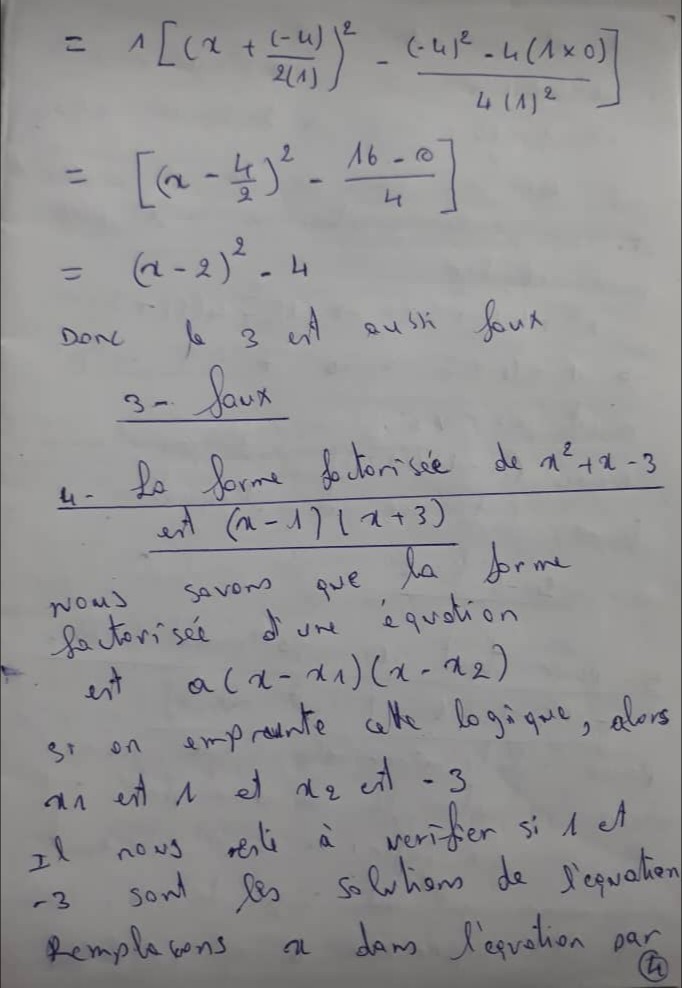 = 1[(x + (-4)/2(1))² - ((-4)² - 4(1×0))/4(1)²]
= [(x - 4/2)² - (16 - 0)/4]
= (x - 2)² - 4
Donc le 3 est aussi faux
3- faux
4- La forme factorisée de x² + x - 3
est (x - 1)(x + 3)
nous savons que la forme
factorisée d'une équation
est a(x - x1)(x - x2)
si on emprunte cette logique, alors
x1 est 1 et x2 est -3
Il nous reste à verifier si 1 et
-3 sont les solutions de l'equation
Remplacons x dans l'equation par
4